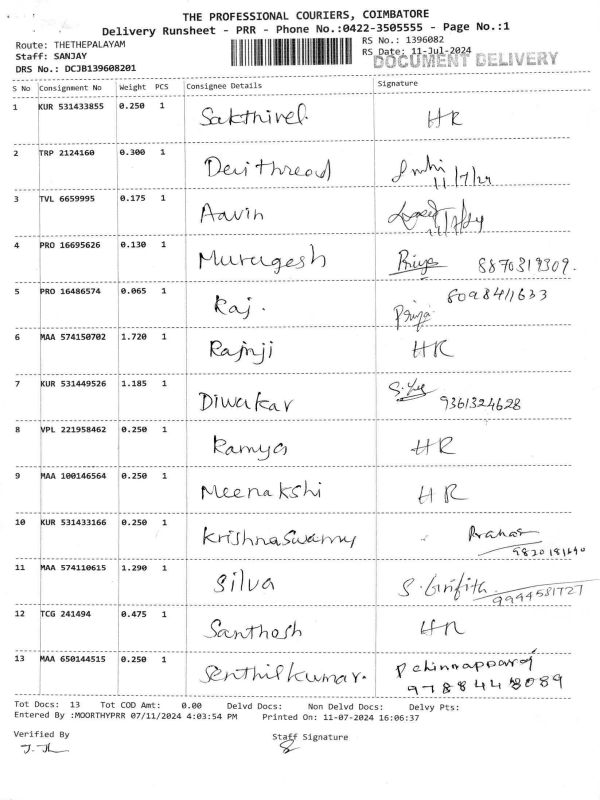 THE PROFESSIONAL COURIERS, COIMBATORE
Delivery Runsheet - PRR - Phone No.:0422-3505555 - Page No.:1
Route: THETHEPALAYAM RS No.: 1396082
Staff: SANJAY RS Date: 11-Jul-2024
DOCUMENT DELIVERY
DRS No.: DCJB139608201
S No Consignment No Weight PCS Consignee Details Signature
1 KUR 531433855 0.250 1 Sakthivel HR
2 TRP 2124160 0.300 1 Devithread 11/7/24
3 TVL 6659995 0.175 1 Aavin
4 PRO 16695626 0.130 1 Murugesh Priya 8870319309.
5 PRO 16486574 0.065 1 Raj. Priya 8098411633
6 MAA 574150702 1.720 1 Rajnji HR
7 KUR 531449526 1.185 1 Diwakar 9361324628
8 VPL 221958462 0.250 1 Ramya HR
9 MAA 100146564 0.250 1 Meenakshi HR
10 KUR 531433166 0.250 1 Krishnaswamy
11 MAA 574110615 1.290 1 Silva 9994581727
12 TCG 241494 0.475 1 Santhosh HR
13 MAA 650144515 0.250 1 Senthilkumar. P chinnapparaj
9788448089
Tot Docs: 13 Tot COD Amt: 0.00 Delvd Docs: Non Delvd Docs: Delvy Pts:
Entered By :MOORTHYPRR 07/11/2024 4:03:54 PM Printed On: 11-07-2024 16:06:37
Verified By Staff Signature